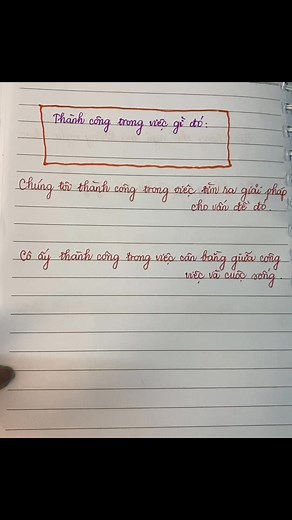 Thành công trong việc gì đó:
Chúng tôi thành công trong việc tìm ra giải pháp
cho vấn đề đó.
Cô ấy thành công trong việc cân bằng giữa công
việc và cuộc sống.